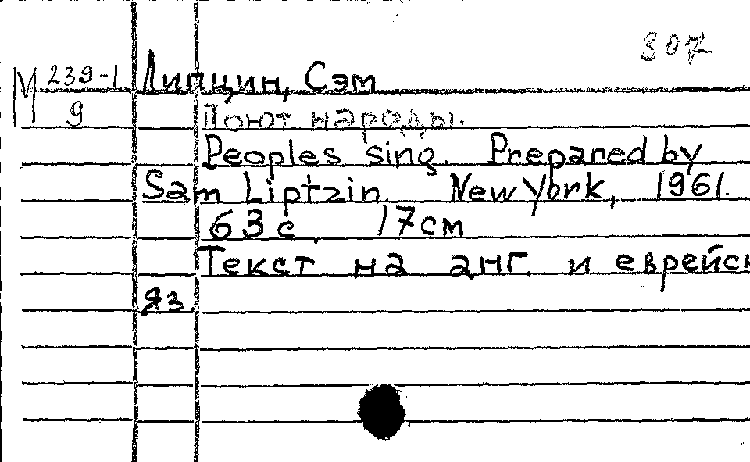 307
М 239-1
9
Липцин, Сэм
Поют народы.
Peoples sing. Prepared by
Sam Liptzin New York, 1961.
63 с. 17см
Текст на анг. и еврейск
яз.